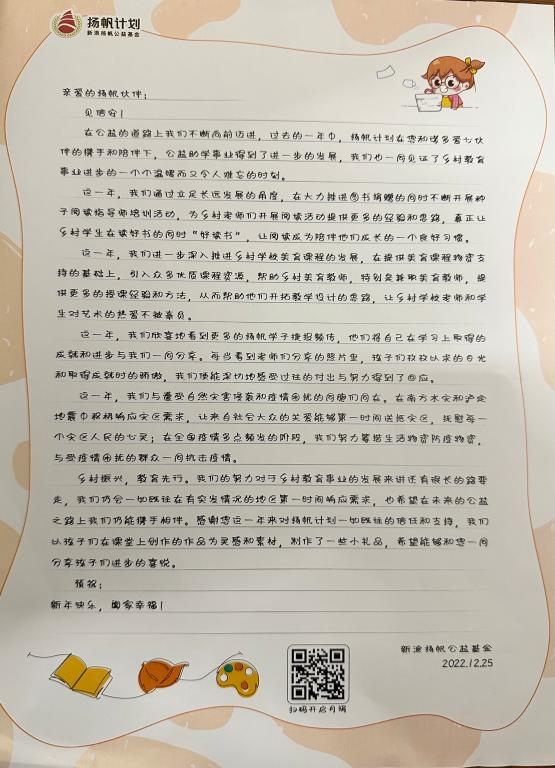 扬帆计划
新浪扬帆公益基金
亲爱的扬帆伙伴：
见信安！
在公益的道路上我们不断向前迈进，过去的一年中，扬帆计划在您和诸多爱心伙
伴的携手和陪伴下，公益助学事业得到了进一步的发展，我们也一同见证了乡村教育
事业进步的一个个温暖而又令人难忘的时刻。
这一年，我们通过立足长远发展的角度，在大力推进图书捐赠的同时不断开展种
子阅读指导师培训活动，为乡村老师们开展阅读活动提供更多的经验和思路，真正让
乡村学生在读好书的同时“好读书”，让阅读成为陪伴他们成长的一个良好习惯。
这一年，我们进一步深入推进乡村学校美育课程的发展，在提供美育课程物资支
持的基础上，引入众多优质课程资源，帮助乡村美育教师，特别是兼职美育教师，提
供更多的授课经验和方法，从而帮助他们开拓教学设计的思路，让乡村学校老师和学
生对艺术的热爱不被辜负。
这一年，我们欣喜地看到更多的扬帆学子捷报频传，他们将自己在学习上取得的
成就和进步与我们一同分享。每当看到老师们分享的照片里，孩子们孜孜以求的目光
和取得成就时的骄傲，我们便能深切地感受过往的付出与努力得到了回应。
这一年，我们与遭受自然灾害侵袭和疫情困扰的同胞们同在。在南方水灾和泸定
地震中积极响应灾区需求，让来自社会大众的关爱能够第一时间送抵灾区，抚慰每一
个灾区人民的心灵；在全国疫情多点频发的阶段，我们努力筹措生活物资防疫物资，
与受疫情困扰的群众一同抗击疫情。
乡村振兴，教育先行。我们的努力对于乡村教育事业的发展来讲还有很长的路要
走，我们仍会一如既往在有突发情况的地区第一时间响应需求，也希望在未来的公益
之路上我们仍能携手相伴。感谢您这一年来对扬帆计划一如既往的信任和支持，我们
以孩子们在课堂上创作的作品为灵感和素材，制作了一些小礼品，希望能够和您一同
分享孩子们进步的喜悦。
预祝：
新年快乐，阖家幸福！
新浪扬帆公益基金
2022.12.25
扫码开启月捐